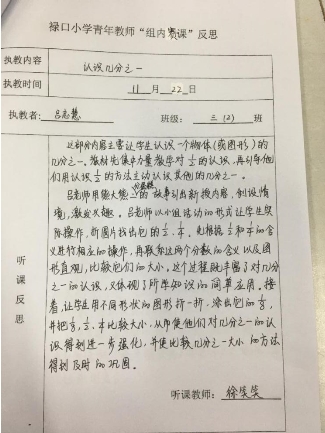 禄口小学青年教师“组内赛课”反思
执教内容 认识几分之一
执教时间 11 月 22 日
执教者: 吕志慧 班级: 三 (2) 班
听课反思
这部分内容主要让学生认识一个物体(或图形)的
几分之一。教材先集中力量教学对½的认识,再引导他
们用认识½的方法主动认识其他的几分之一。
吕老师用熊大熊二分蛋糕的故事引出新授内容,创设情
境,激发兴趣。吕老师以小组活动的形式让学生实
际操作,折图片找出它的½、¼。先根据½和¼的含
义进行相应的操作,再联系这两个分数的含义以及图
形直观,比较它们的大小,这个过程既丰富了对几分
之一的认识,又体现了所学知识的简单应用。接
着让学生用不同形状的图形折一折,涂出它的⅛,
并把⅛、½、¼比较大小,从而使他们对几分之一的认
识得到进一步强化,并使比较几分之一大小的方法
得到及时的巩固。
听课教师: 徐笑笑